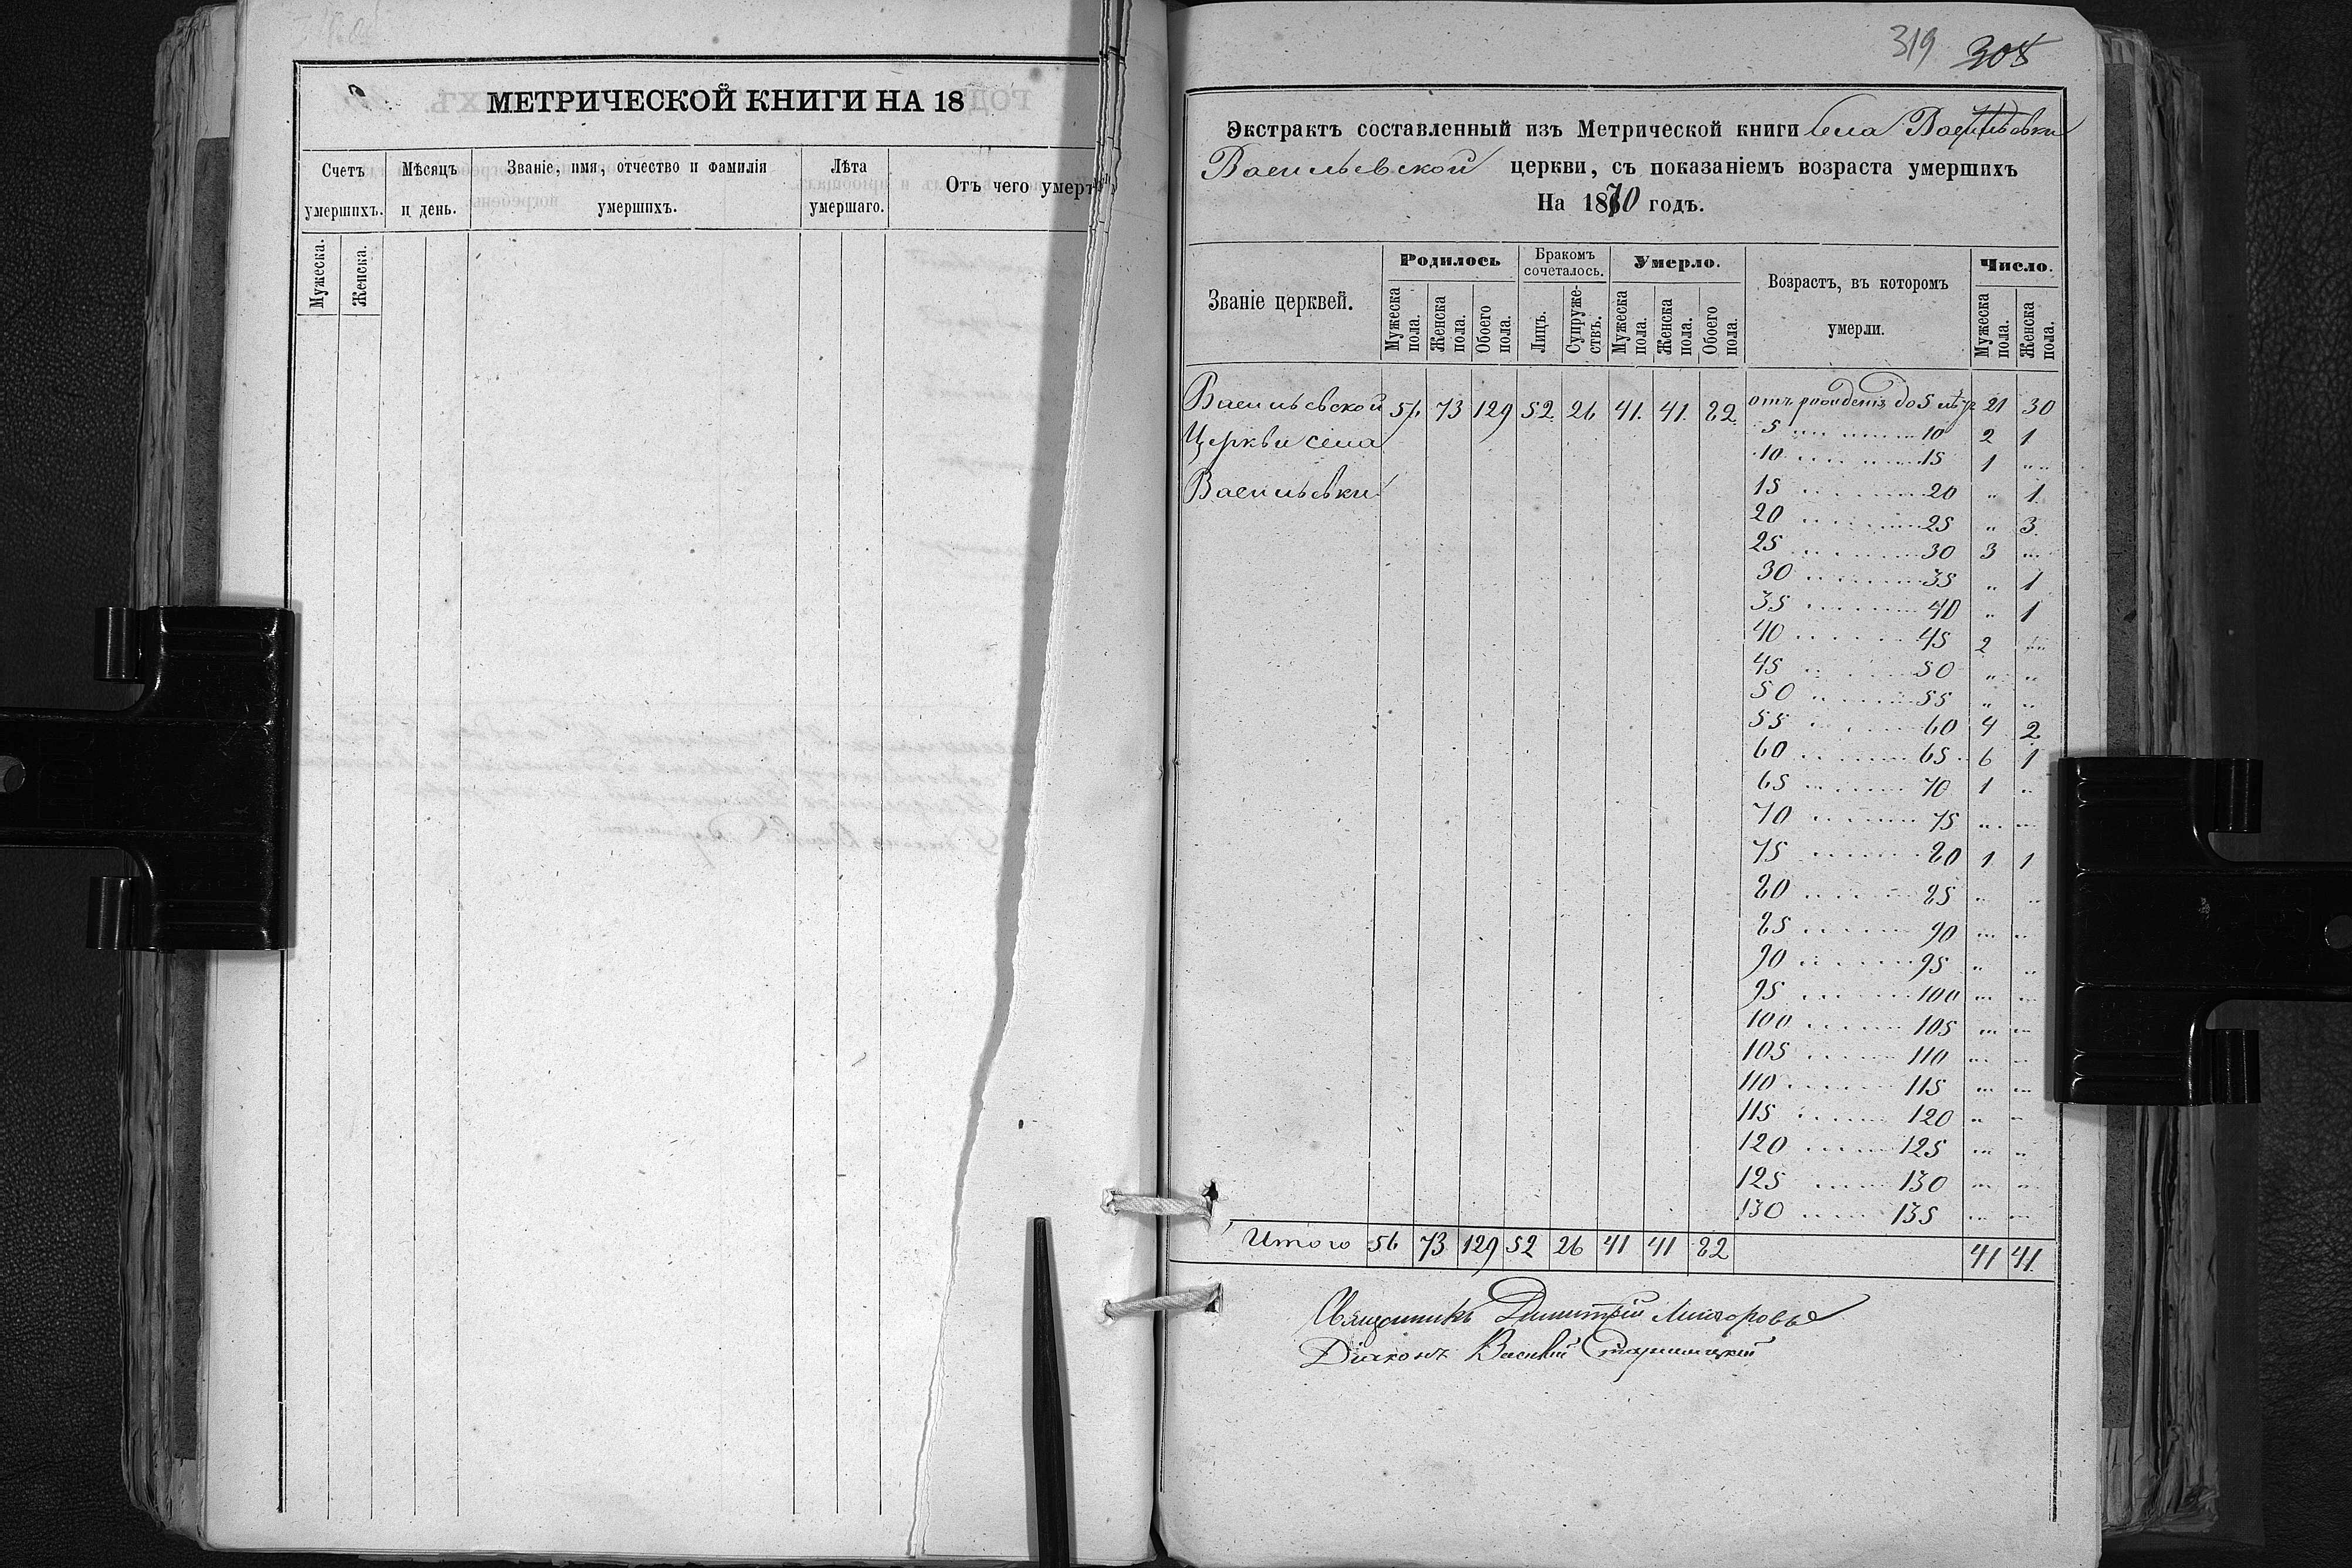 МЕТРИЧЕСКОЙ КНИГИ НА 18
Счетъ умершихъ.
Мѣсяцъ и день.
Званіе, имя, отчество и фамилія умершихъ.
Лѣта умершаго.
Отъ чего умеръ
Мужеска.
Женска.
319 308
Экстрактъ составленный изъ Метрической книги села Васильевки
Васильевской церкви, съ показаніемъ возраста умершихъ
На 1870 годъ.
Званіе церквей.
Родилось
Бракомъ сочеталось.
Умерло.
Возрастъ, въ которомъ умерли.
Число.
Мужеска пола.
Женска пола.
Обоего пола.
Лицъ.
Супружествъ.
Мужеска пола.
Женска пола.
Обоего пола.
Мужеска пола.
Женска пола.
Васильевской 56 73 129 52 26 41. 41. 82. отъ рожденія до 5 21 30
Церкви села 5 10 2 1
10 15 1 „
Васильевки 15 20 „ 1
20 25 „ 3
25 30 3 „
30 35 „ 1
35 40 „ 1
40 45 2 „
45 50 „ „
50 55 „ „
55 60 4 2
60 65 6 1
65 70 1 „
70 75 „ „
75 80 1 1
80 85 „ „
85 90 „ „
90 95 „ „
95 100 „ „
100 105 „ „
105 110 „ „
110 115 „ „
115 120 „ „
120 125 „ „
125 130 „ „
130 135 „ „
Итого 56 73 129 52 26 41 41 82 41 41
Священникъ Димитрій
Діаконъ Василій